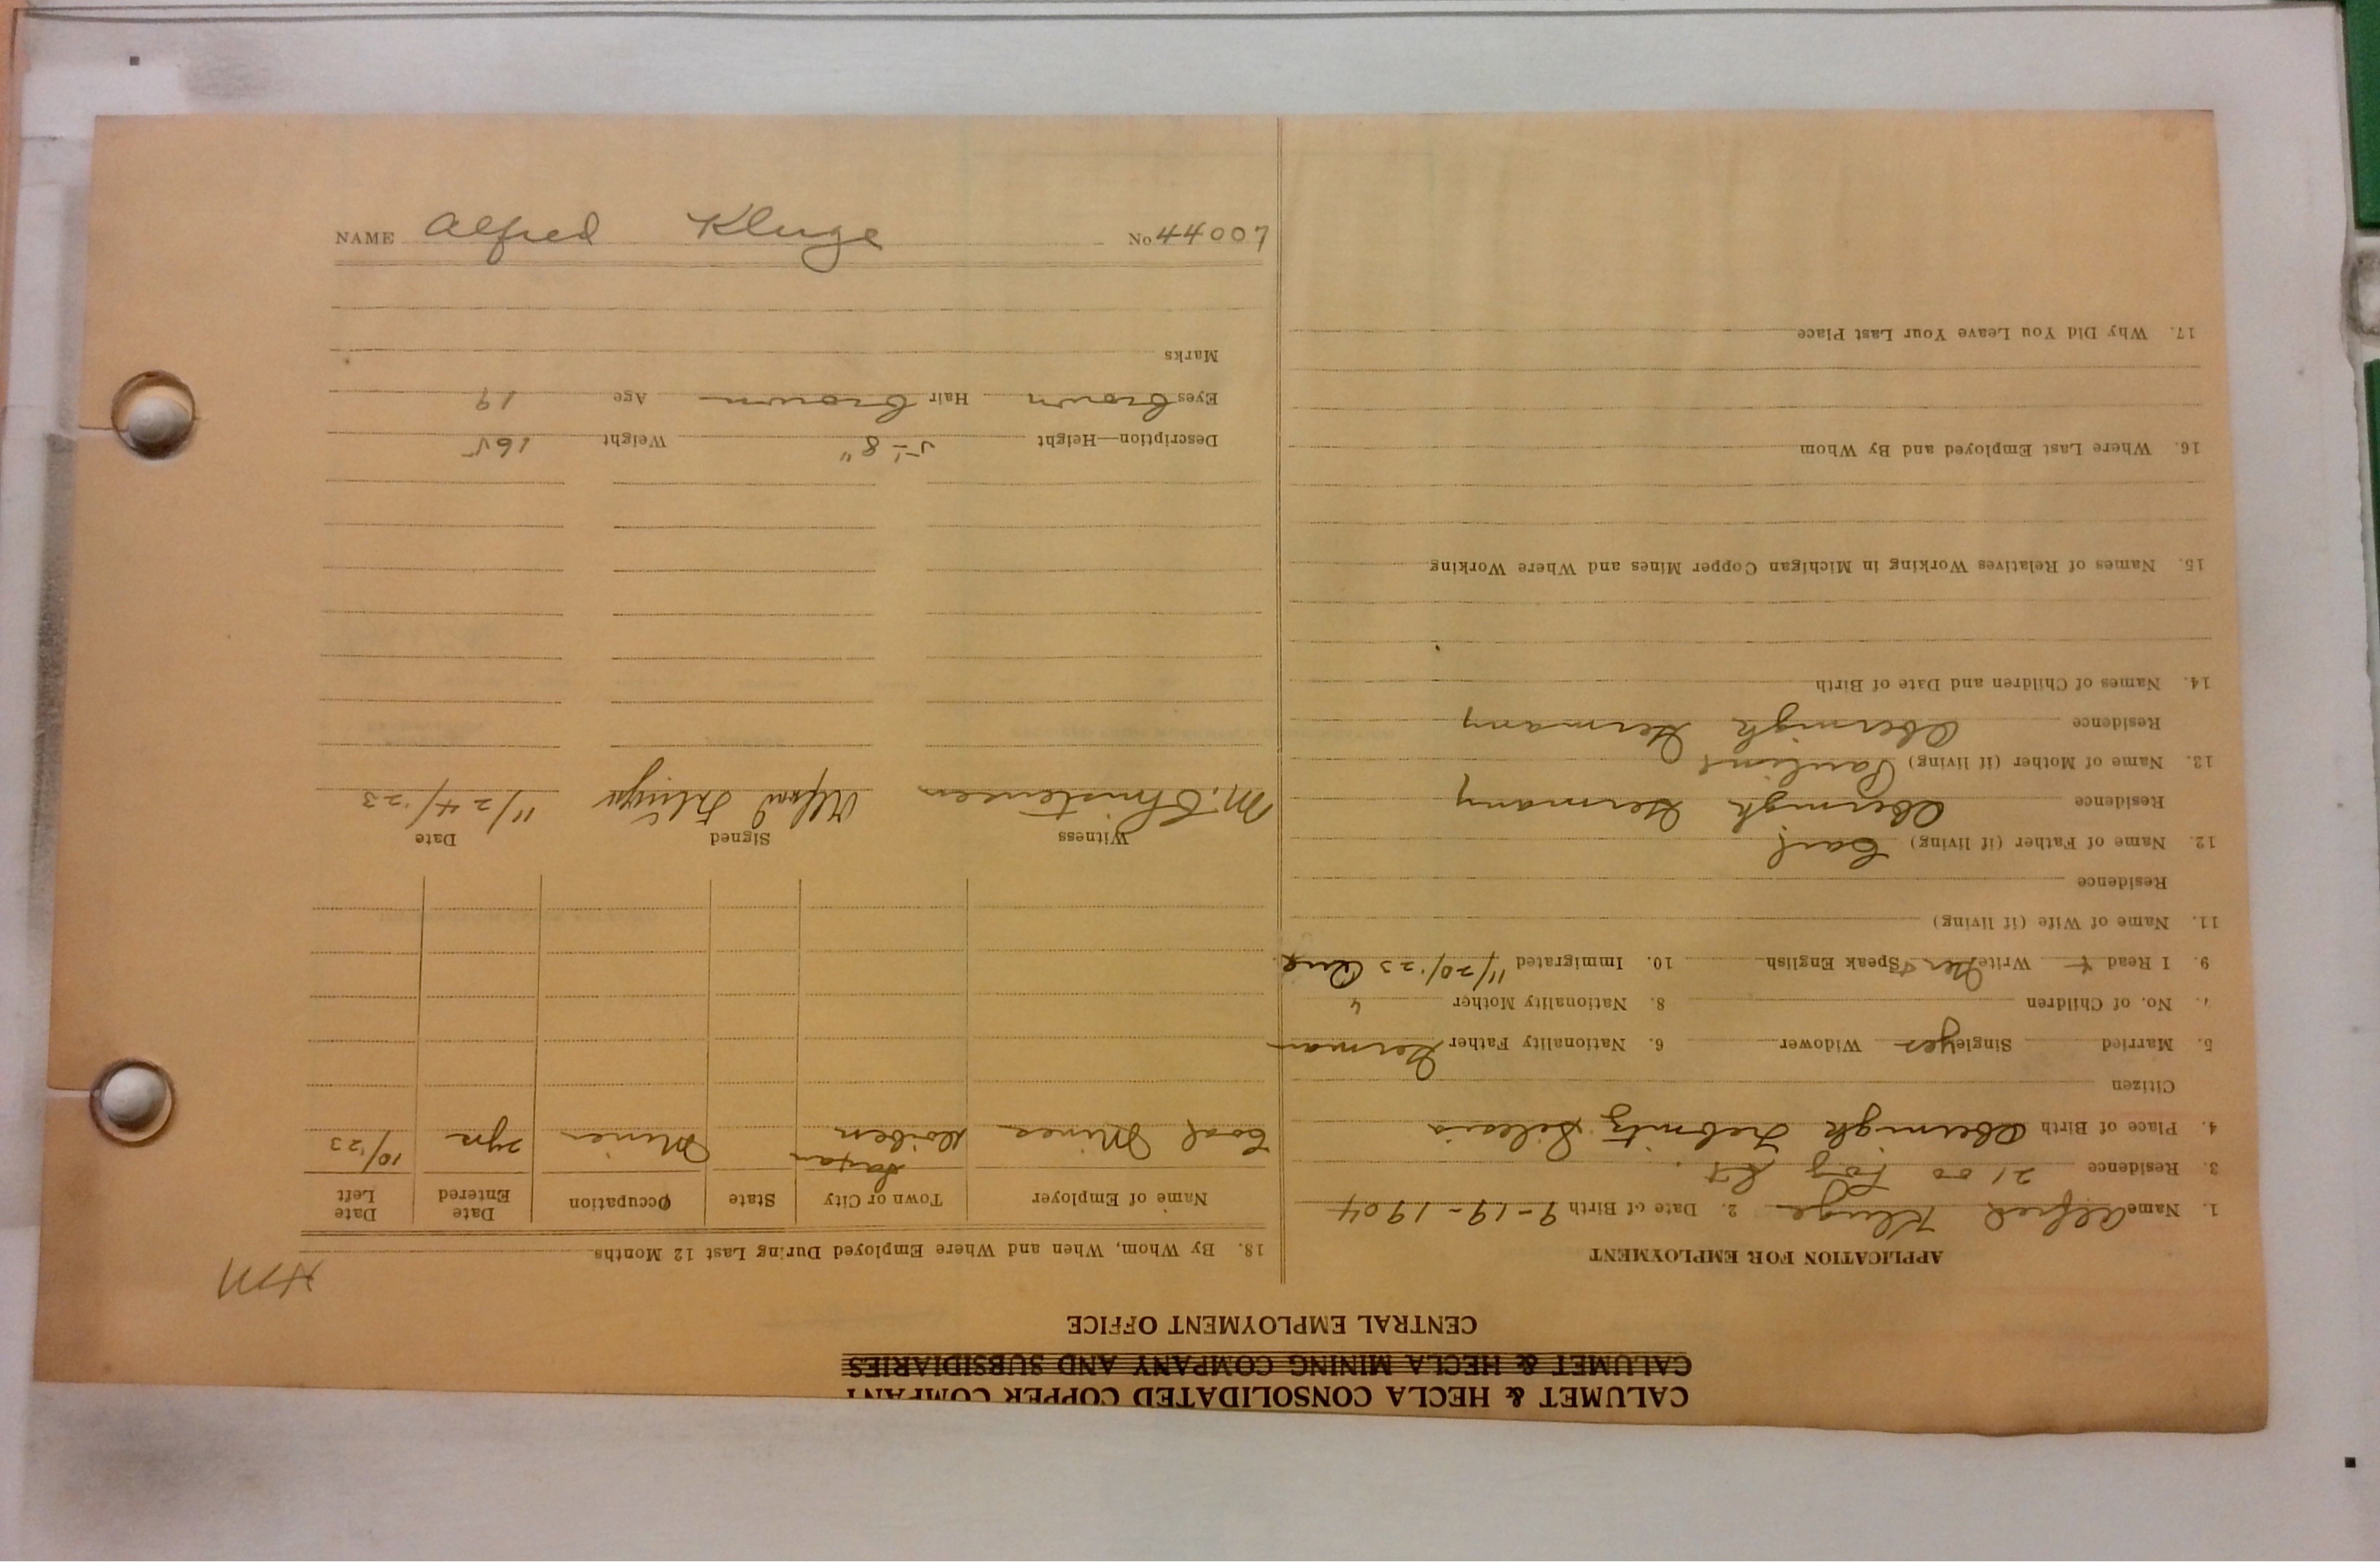 CALUMET & HECLA CONSOLIDATED COPPER COMPANY
CALUMET & HECLA MINING COMPANY AND SUBSIDIARIES
CENTRAL EMPLOYMENT OFFICE
APPLICATION FOR EMPLOYMENT
1. Name Alfred Kluge 2. Date of Birth 9-19-1904
3. Residence 2100 Log St.
4. Place of Birth Obernigk Trebnitz Silesia
Citizen
5. Married Single yes Widower 6. Nationality Father German
7. No. of Children 8. Nationality Mother "
9. I Read + Write Ger + Speak English 10. Immigrated 11/20/23
11. Name of Wife (if living)
Residence
12. Name of Father (if living) Carl
Residence Obernigk Germany
13. Name of Mother (if living) Pauline
Residence Obernigk Germany
14. Names of Children and Date of Birth
15. Names of Relatives Working in Michigan Copper Mines and Where Working
16. Where Last Employed and By Whom
17. Why Did You Leave Your Last Place
HM
18. By Whom, When and Where Employed During Last 12 Months
Name of Employer Town or City State Occupation Date Entered Date Left
Coal Mines Miner 2yrs 10/23
Witness Signed Date
M. Christensen Alfred 11/24/23
Description—Height 5'-8" Weight 165
Eyes brown Hair brown Age 19
Marks
NAME Alfred Kluge No 44007